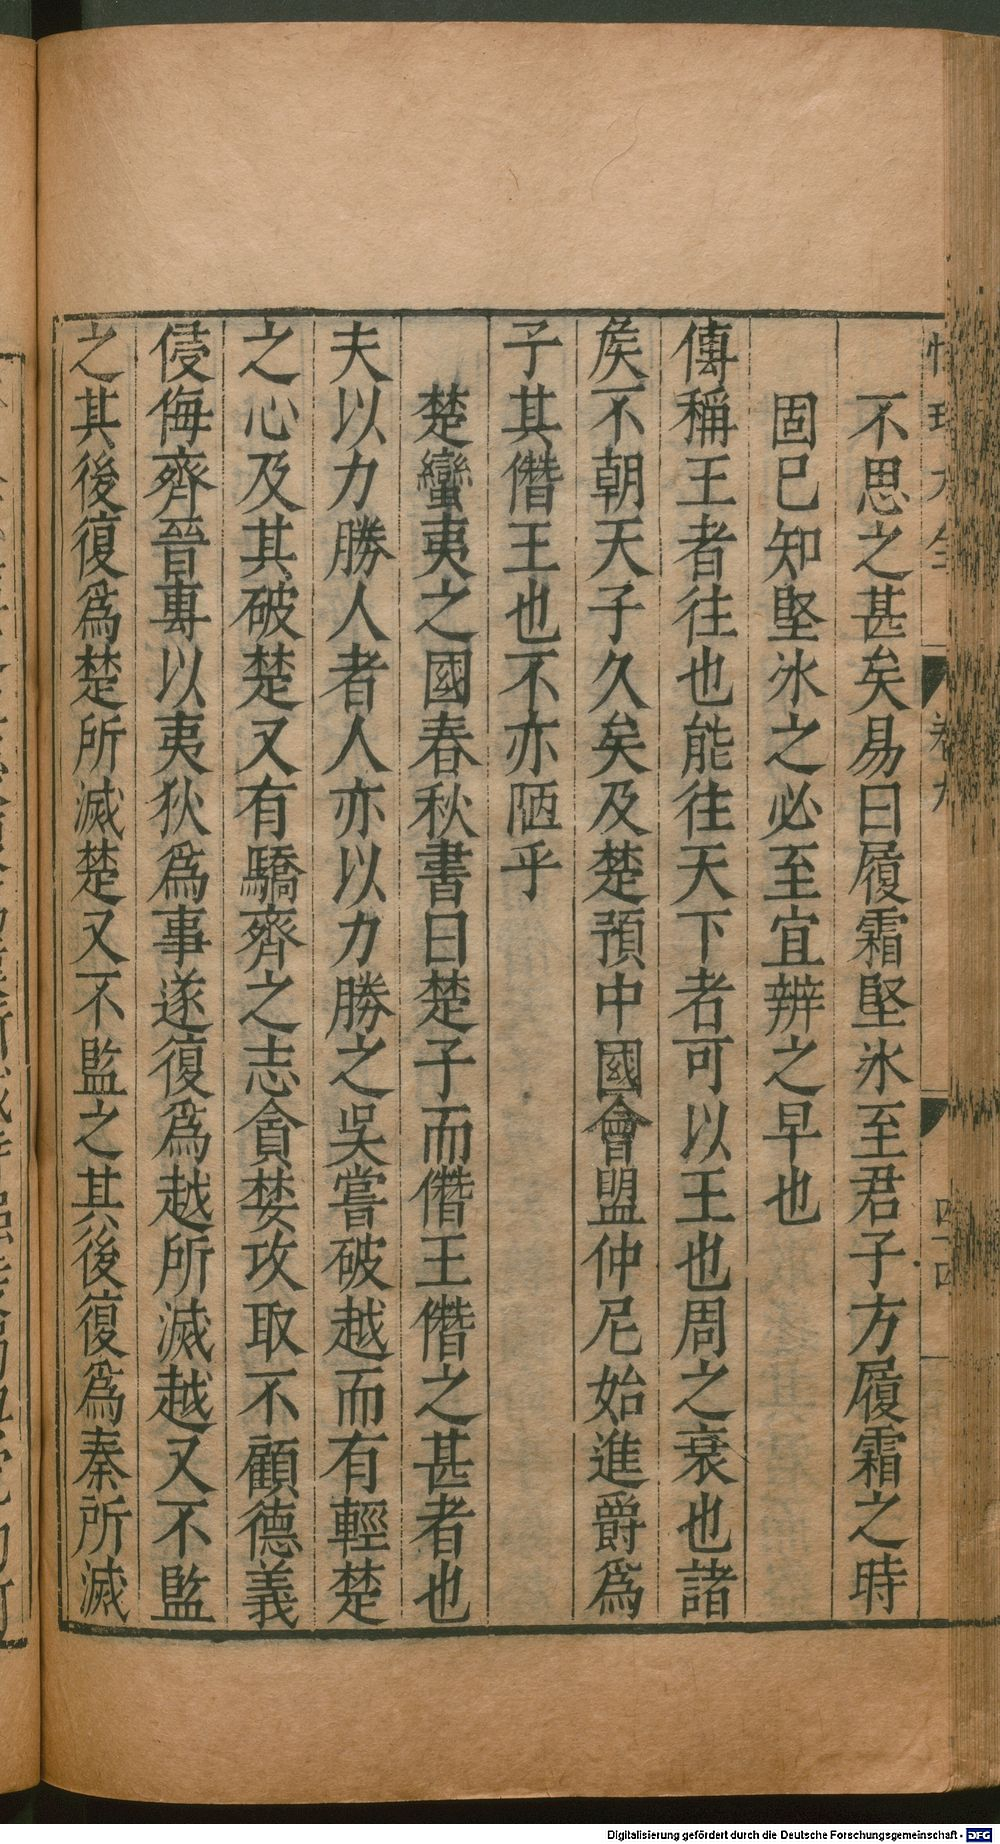 不思之甚矣易曰履霜堅氷至君子方履霜之時
固已知堅氷之必至宜辨之早也
傳稱王者往也能往天下者可以王也周之衰也諸
矦不朝天子久矣及楚預中國會盟仲尼始進爵爲
子其僭王也不亦陋乎
楚蠻夷之國春秋書曰楚子而僭王僭之甚者也
夫以力勝人者人亦以力勝之吳嘗破越而有輕楚
之心及其破楚又有驕齊之志貪婪攻取不顧德義
侵侮齊晉專以夷狄爲事遂復爲越所滅越又不監
之其後復爲楚所滅楚又不監之其後復爲秦所滅
Digitalisierung gefördert durch die Deutsche Forschungsgemeinschaft - DFG